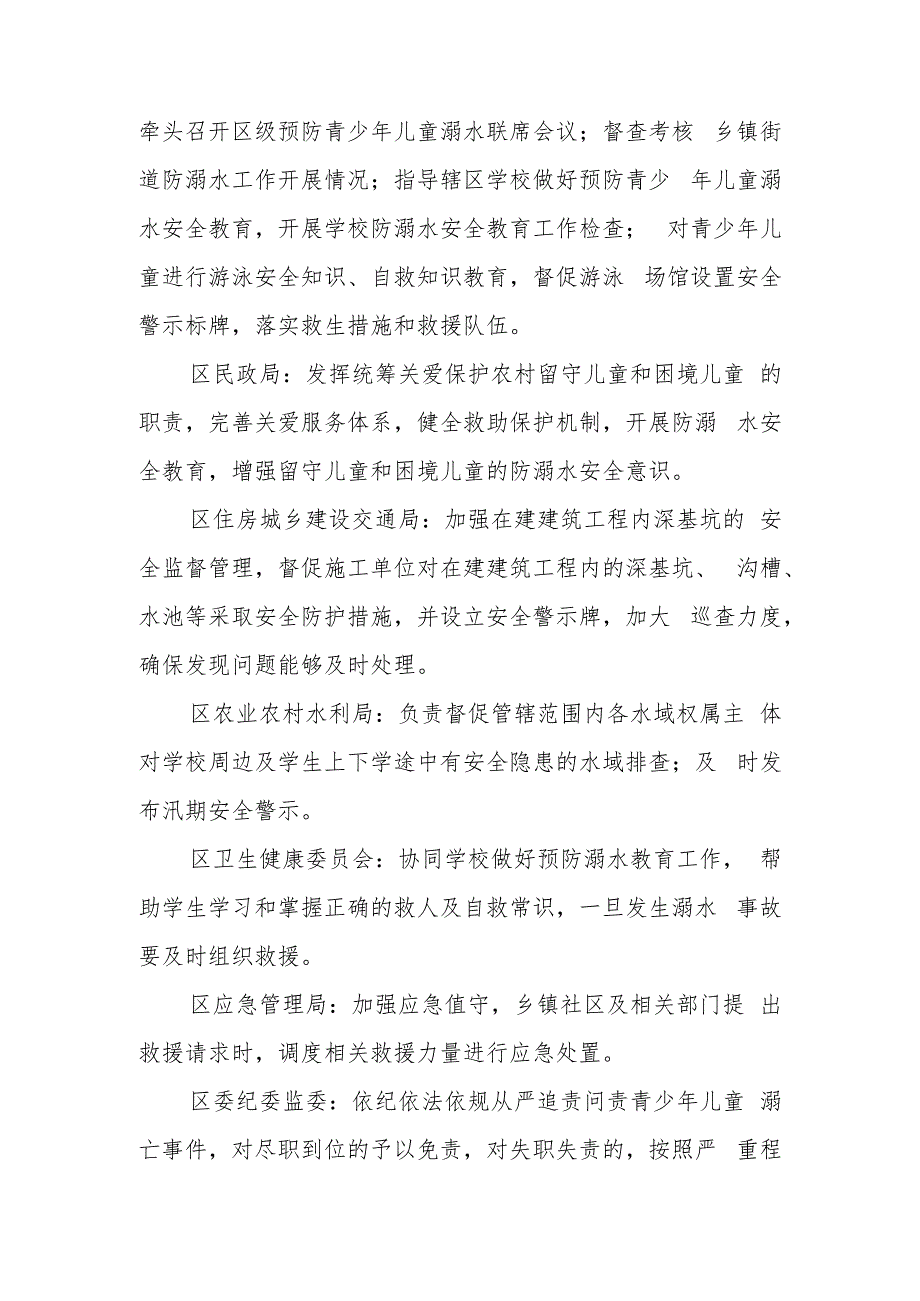 牵头召开区级预防青少年儿童溺水联席会议；督查考核 乡镇街
道防溺水工作开展情况；指导辖区学校做好预防青少 年儿童溺
水安全教育，开展学校防溺水安全教育工作检查； 对青少年儿
童进行游泳安全知识、自救知识教育，督促游泳 场馆设置安全
警示标牌，落实救生措施和救援队伍。
区民政局：发挥统筹关爱保护农村留守儿童和困境儿童 的
职责，完善关爱服务体系，健全救助保护机制，开展防溺 水安
全教育，增强留守儿童和困境儿童的防溺水安全意识。
区住房城乡建设交通局：加强在建建筑工程内深基坑的 安
全监督管理，督促施工单位对在建建筑工程内的深基坑、 沟槽、
水池等采取安全防护措施，并设立安全警示牌，加大 巡查力度，
确保发现问题能够及时处理。
区农业农村水利局：负责督促管辖范围内各水域权属主 体
对学校周边及学生上下学途中有安全隐患的水域排查；及 时发
布汛期安全警示。
区卫生健康委员会：协同学校做好预防溺水教育工作， 帮
助学生学习和掌握正确的救人及自救常识，一旦发生溺水 事故
要及时组织救援。
区应急管理局：加强应急值守，乡镇社区及相关部门提 出
救援请求时，调度相关救援力量进行应急处置。
区委纪委监委：依纪依法依规从严追责问责青少年儿童 溺
亡事件，对尽职到位的予以免责，对失职失责的，按照严 重程